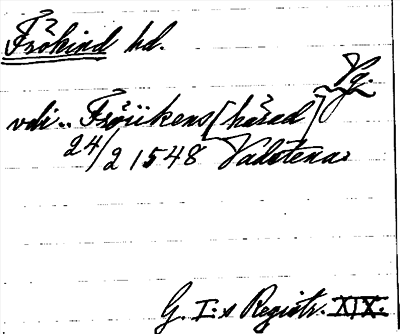 Frökind hd.
Vg.
vdi.. Fröükens [härad]
24/2 1548 Vadstena.
G. I:s Registr. XIX.